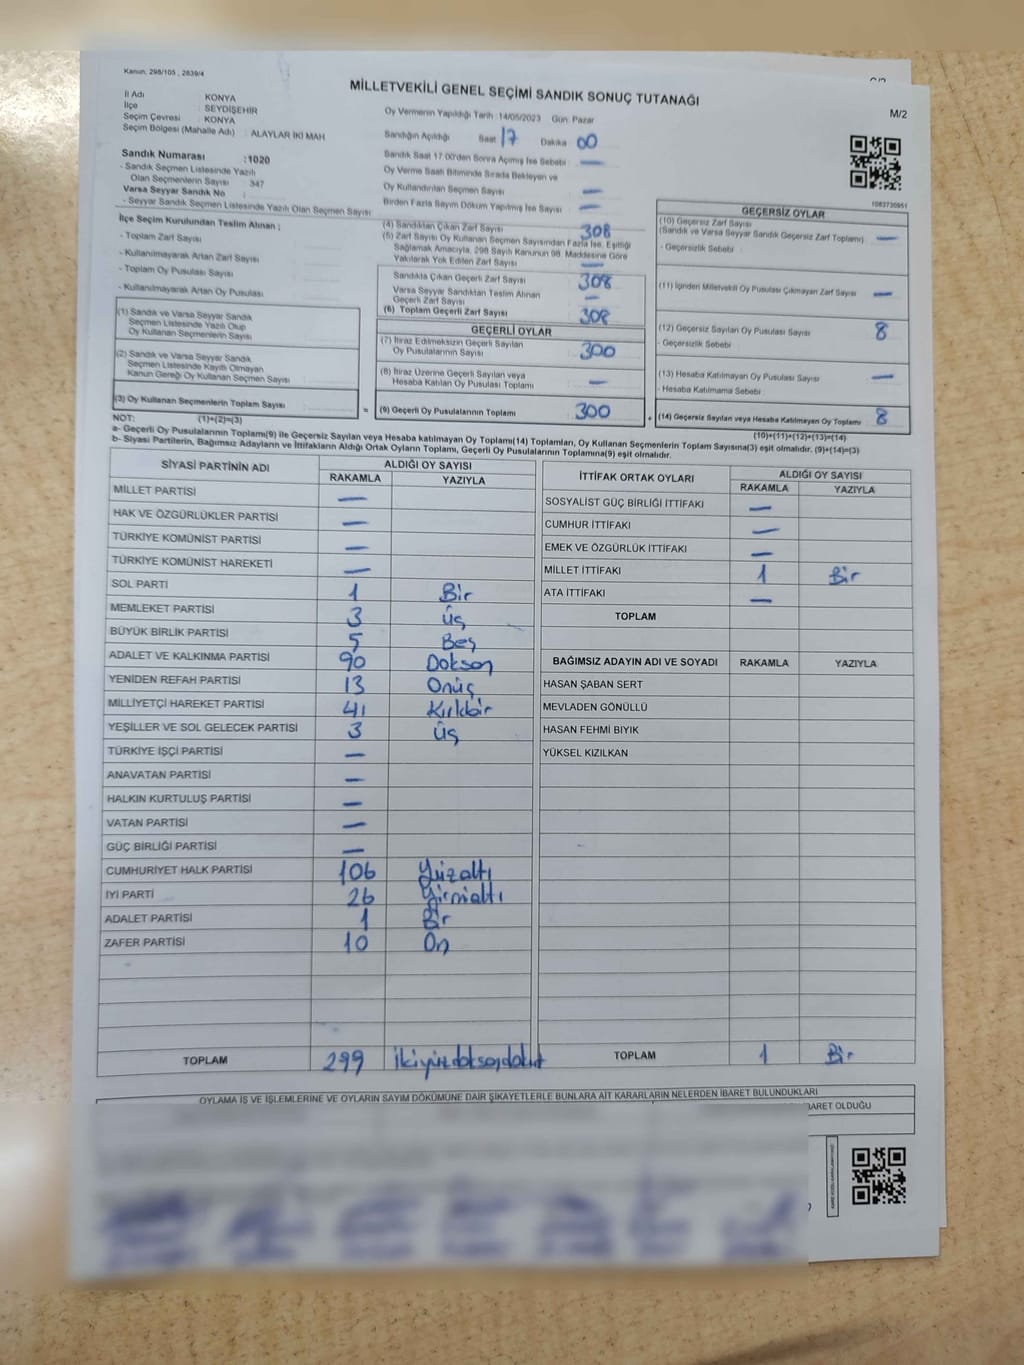 Kanun, 298/105 , 2839/4
MİLLETVEKİLİ GENEL SEÇİMİ SANDIK SONUÇ TUTANAĞI
M/2
İl Adı : KONYA
İlçe : SEYDİŞEHİR
Seçim Çevresi : KONYA
Seçim Bölgesi (Mahalle Adı) : ALAYLAR İKİ MAH
Sandık Numarası :1020
- Sandık Seçmen Listesinde Yazılı
Olan Seçmenlerin Sayısı 347
Varsa Seyyar Sandık No :
- Seyyar Sandık Seçmen Listesinde Yazılı Olan Seçmen Sayısı
İlçe Seçim Kurulundan Teslim Alınan ;
- Toplam Zarf Sayısı
- Kullanılmayarak Artan Zarf Sayısı
- Toplam Oy Pusulası Sayısı
- Kullanılmayarak Artan Oy Pusulası
(1) Sandık ve Varsa Seyyar Sandık
Seçmen Listesinde Yazılı Olup
Oy Kullanan Seçmenlerin Sayısı
(2) Sandık ve Varsa Seyyar Sandık
Seçmen Listesinde Kayıtlı Olmayan
Kanun Gereği Oy Kullanan Seçmen Sayısı
(3) Oy Kullanan Seçmenlerin Toplam Sayısı
Oy Vermenin Yapıldığı Tarih :14/05/2023 Gün: Pazar
Sandığın Açıldığı Saat 17 Dakika 00
Sandık Saat 17:00'den Sonra Açılmış İse Sebebi : —
Oy Verme Saati Bitiminde Sırada Bekleyen ve
Oy Kullandırılan Seçmen Sayısı : —
Birden Fazla Sayım Döküm Yapılmış İse Sayısı : —
(4) Sandıktan Çıkan Zarf Sayısı 308
(5) Zarf Sayısı Oy Kullanan Seçmen Sayısından Fazla İse, Eşitliği
Sağlamak Amacıyla, 298 Sayılı Kanunun 98. Maddesine Göre
Yakılarak Yok Edilen Zarf Sayısı —
Sandıkta Çıkan Geçerli Zarf Sayısı 308
Varsa Seyyar Sandıktan Teslim Alınan
Geçerli Zarf Sayısı —
(6) Toplam Geçerli Zarf Sayısı 308
GEÇERLİ OYLAR
(7) İtiraz Edilmeksizin Geçerli Sayılan
Oy Pusulalarının Sayısı 300
(8) İtiraz Üzerine Geçerli Sayılan veya
Hesaba Katılan Oy Pusulası Toplamı —
= (9) Geçerli Oy Pusulalarının Toplamı 300
1083730951
GEÇERSİZ OYLAR
(10) Geçersiz Zarf Sayısı
(Sandık ve Varsa Seyyar Sandık Geçersiz Zarf Toplamı) —
- Geçersizlik Sebebi :
(11) İçinden Milletvekili Oy Pusulası Çıkmayan Zarf Sayısı —
(12) Geçersiz Sayılan Oy Pusulası Sayısı 8
- Geçersizlik Sebebi :
(13) Hesaba Katılmayan Oy Pusulası Sayısı —
- Hesaba Katılmama Sebebi :
+ (14) Geçersiz Sayılan veya Hesaba Katılmayan Oy Toplamı 8
NOT: (1)+(2)=(3) (10)+(11)+(12)+(13)=(14)
a- Geçerli Oy Pusulalarının Toplamı(9) ile Geçersiz Sayılan veya Hesaba katılmayan Oy Toplamı(14) Toplamları, Oy Kullanan Seçmenlerin Toplam Sayısına(3) eşit olmalıdır. (9)+(14)=(3)
b- Siyasi Partilerin, Bağımsız Adayların ve İttifakların Aldığı Ortak Oyların Toplamı, Geçerli Oy Pusulalarının Toplamına(9) eşit olmalıdır.
SİYASİ PARTİNİN ADI ALDIĞI OY SAYISI
RAKAMLA YAZIYLA
MİLLET PARTİSİ —
HAK VE ÖZGÜRLÜKLER PARTİSİ —
TÜRKİYE KOMÜNİST PARTİSİ —
TÜRKİYE KOMÜNİST HAREKETİ —
SOL PARTİ 1 Bir
MEMLEKET PARTİSİ 3 Üç
BÜYÜK BİRLİK PARTİSİ 5 Beş
ADALET VE KALKINMA PARTİSİ 90 Doksan
YENİDEN REFAH PARTİSİ 13 Onüç
MİLLİYETÇİ HAREKET PARTİSİ 41 Kırkbir
YEŞİLLER VE SOL GELECEK PARTİSİ 3 Üç
TÜRKİYE İŞÇİ PARTİSİ —
ANAVATAN PARTİSİ —
HALKIN KURTULUŞ PARTİSİ —
VATAN PARTİSİ —
GÜÇ BİRLİĞİ PARTİSİ —
CUMHURİYET HALK PARTİSİ 106 Yüzaltı
İYİ PARTİ 26 Yirmialtı
ADALET PARTİSİ 1 Bir
ZAFER PARTİSİ 10 On
TOPLAM 299 ikiyüzdoksandokuz
İTTİFAK ORTAK OYLARI ALDIĞI OY SAYISI
RAKAMLA YAZIYLA
SOSYALİST GÜÇ BİRLİĞİ İTTİFAKI —
CUMHUR İTTİFAKI —
EMEK VE ÖZGÜRLÜK İTTİFAKI —
MİLLET İTTİFAKI 1 Bir
ATA İTTİFAKI —
TOPLAM
BAĞIMSIZ ADAYIN ADI VE SOYADI RAKAMLA YAZIYLA
HASAN ŞABAN SERT
MEVLADEN GÖNÜLLÜ
HASAN FEHMİ BIYIK
YÜKSEL KIZILKAN
TOPLAM 1 Bir
OYLAMA İŞ VE İŞLEMLERİNE VE OYLARIN SAYIM DÖKÜMÜNE DAİR ŞİKAYETLERLE BUNLARA AİT KARARLARIN NELERDEN İBARET BULUNDUKLARI
BARET OLDUĞU